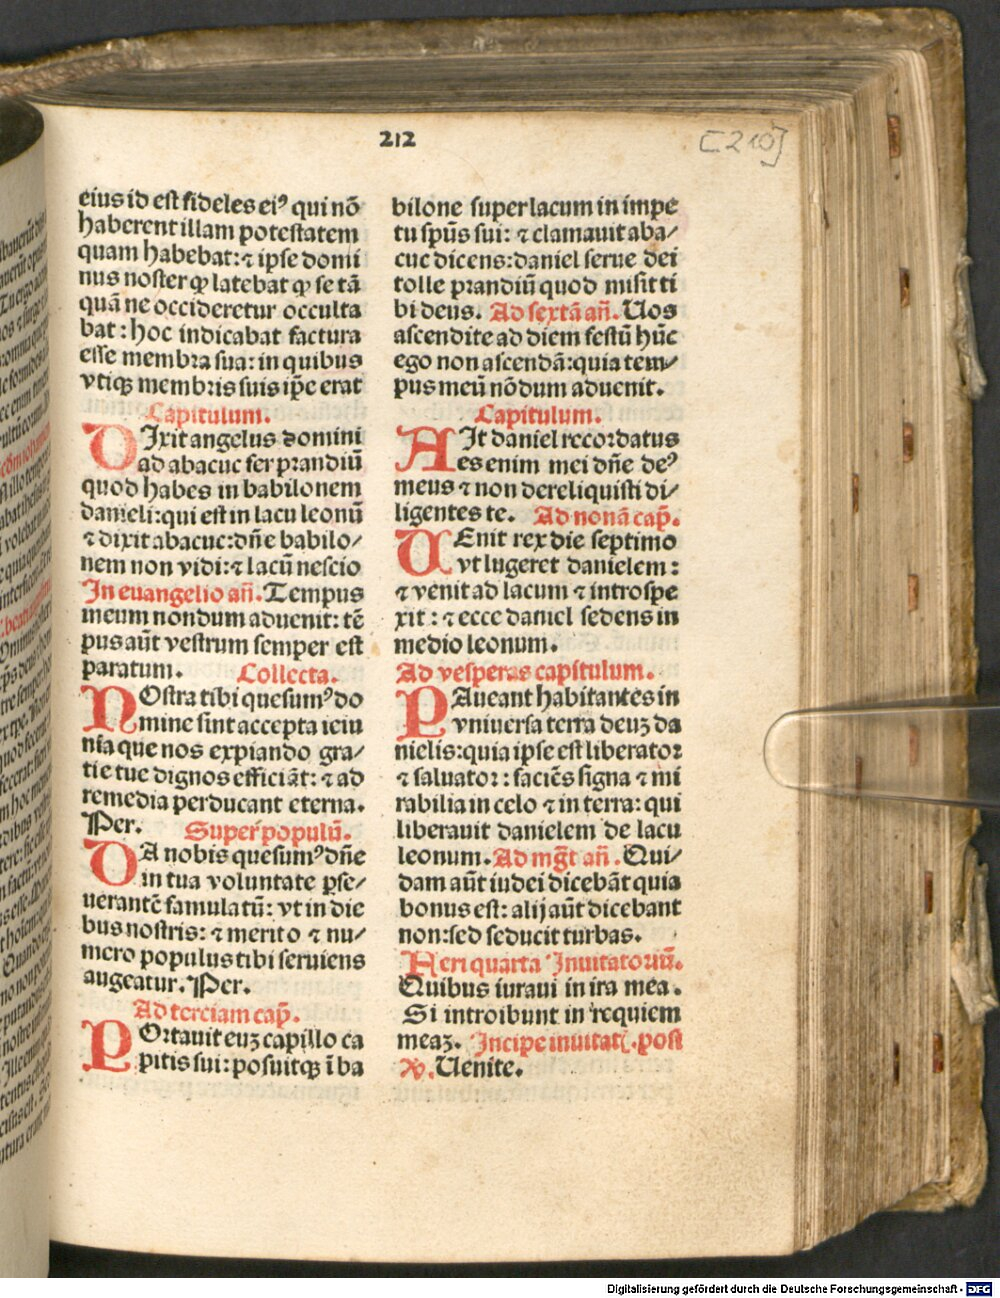 212
[210]
eius id est fideles eiꝰ qui nō
haberent illam potestatem
quam habebat: ⁊ ipse domi
nus noster ꝙ latebat ꝙ se tā
quā ne occideretur occulta
bat: hoc indicabat factura
esse membra sua: in quibus
vtiqꝫ membris suis ip̄e erat
Capitulum.
DIxit angelus domini
ad abacuc fer prandiū
quod habes in babilonem
danieli: qui est in lacu leonū
⁊ dixit abacuc: dn̄e babilo/
nem non vidi: ⁊ lacū nescio
In euangelio an̄. Tempus
meum nondum aduenit: tē
pus aūt vestrum semper est
paratum. Collecta.
NOstra tibi quesumꝰ do
mine sint accepta ieiu
nia que nos expiando gra/
tie tue dignos efficiāt: ⁊ ad
remedia perducant eterna.
Per. Super populū.
DA nobis quesumꝰ dn̄e
in tua voluntate ꝑse/
uerantē famulatū: vt in die
bus nostris: ⁊ merito ⁊ nu/
mero populus tibi seruiens
augeatur. Per.
Ad terciam cap̄.
POrtauit euꝫ capillo ca
pitis sui: posuitqꝫ ī ba
bilone super lacum in impe
tu sp̄us sui: ⁊ clamauit aba/
cuc dicens: daniel serue dei
tolle prandiū quod misit ti
bi deus. Ad sextā an̄. Uos
ascendite ad diem festū hūc
ego non ascendā: quia tem/
pus meū nōdum aduenit.
Capitulum.
AIt daniel recordatus
es enim mei dn̄e deꝰ
meus ⁊ non dereliquisti di/
ligentes te. Ad nonā cap̄.
UEnit rex die septimo
vt lugeret danielem:
⁊ venit ad lacum ⁊ introspe
xit: ⁊ ecce daniel sedens in
medio leonum.
Ad vesperas capitulum.
PAueant habitantes in
vniuersa terra deuꝫ da
nielis: quia ipse est liberator
⁊ saluator: faciēs signa ⁊ mi
rabilia in celo ⁊ in terra: qui
liberauit danielem de lacu
leonum. Ad mg̅t an̄. Qui/
dam aūt iudei dicebāt quia
bonus est: alij aūt dicebant
non: sed seducit turbas.
Feri quarta Inuitatoriū.
Quibus iuraui in ira mea.
Si introibunt in requiem
meaꝫ. Incipe inuitat̄. post
Uenite.
Digitalisierung gefördert durch die Deutsche Forschungsgemeinschaft - DFG